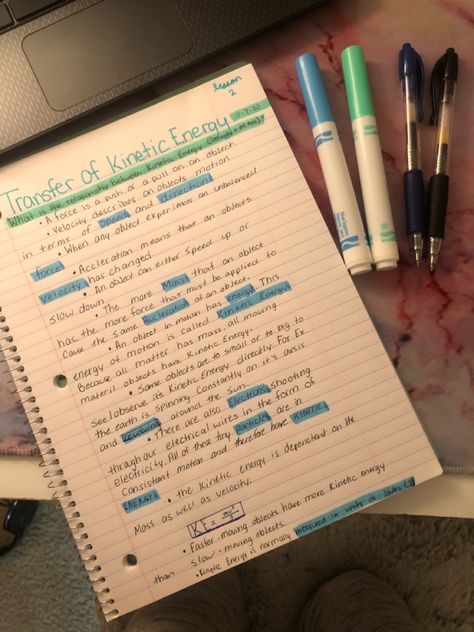 lesson
2
Transfer of Kinetic Energy
What is the relationship between Kinetic Energy
• A force is a push or a pull on an object.
• Velocity describes an objects motion
in terms of Speed and direction!
• When any object experiences an unbalanced
force
• Accleration means that an objects
Velocity has changed.
• An object can either speed up or
slow down.
• The more Mass that an object
has, the more force that must be applied to
cause the same Accleration of an object.
• An object in motion has energy. This
energy of motion is called Kinetic Energy!
Because all matter has mass, all moving
objects have Kinetic Energy.
• Some objects are to small or to big to
see/observe its Kinetic Energy directly. For Ex
the earth is spinning constantly on it's axis
and revolving around the sun.
• There are also Electrons shooting
through electrical wires in the form of
electricity. All of these tiny particles are in
consistant motion and therefore have KINETIC
ENERGY
• the kinetic energy is dependent on the
Mass as well as velocity.
KE = mv²/2
• Faster-moving objects have more kinetic energy
than slow-moving objects.
• Kinetic Energy is normally measured in units of Joules (J)